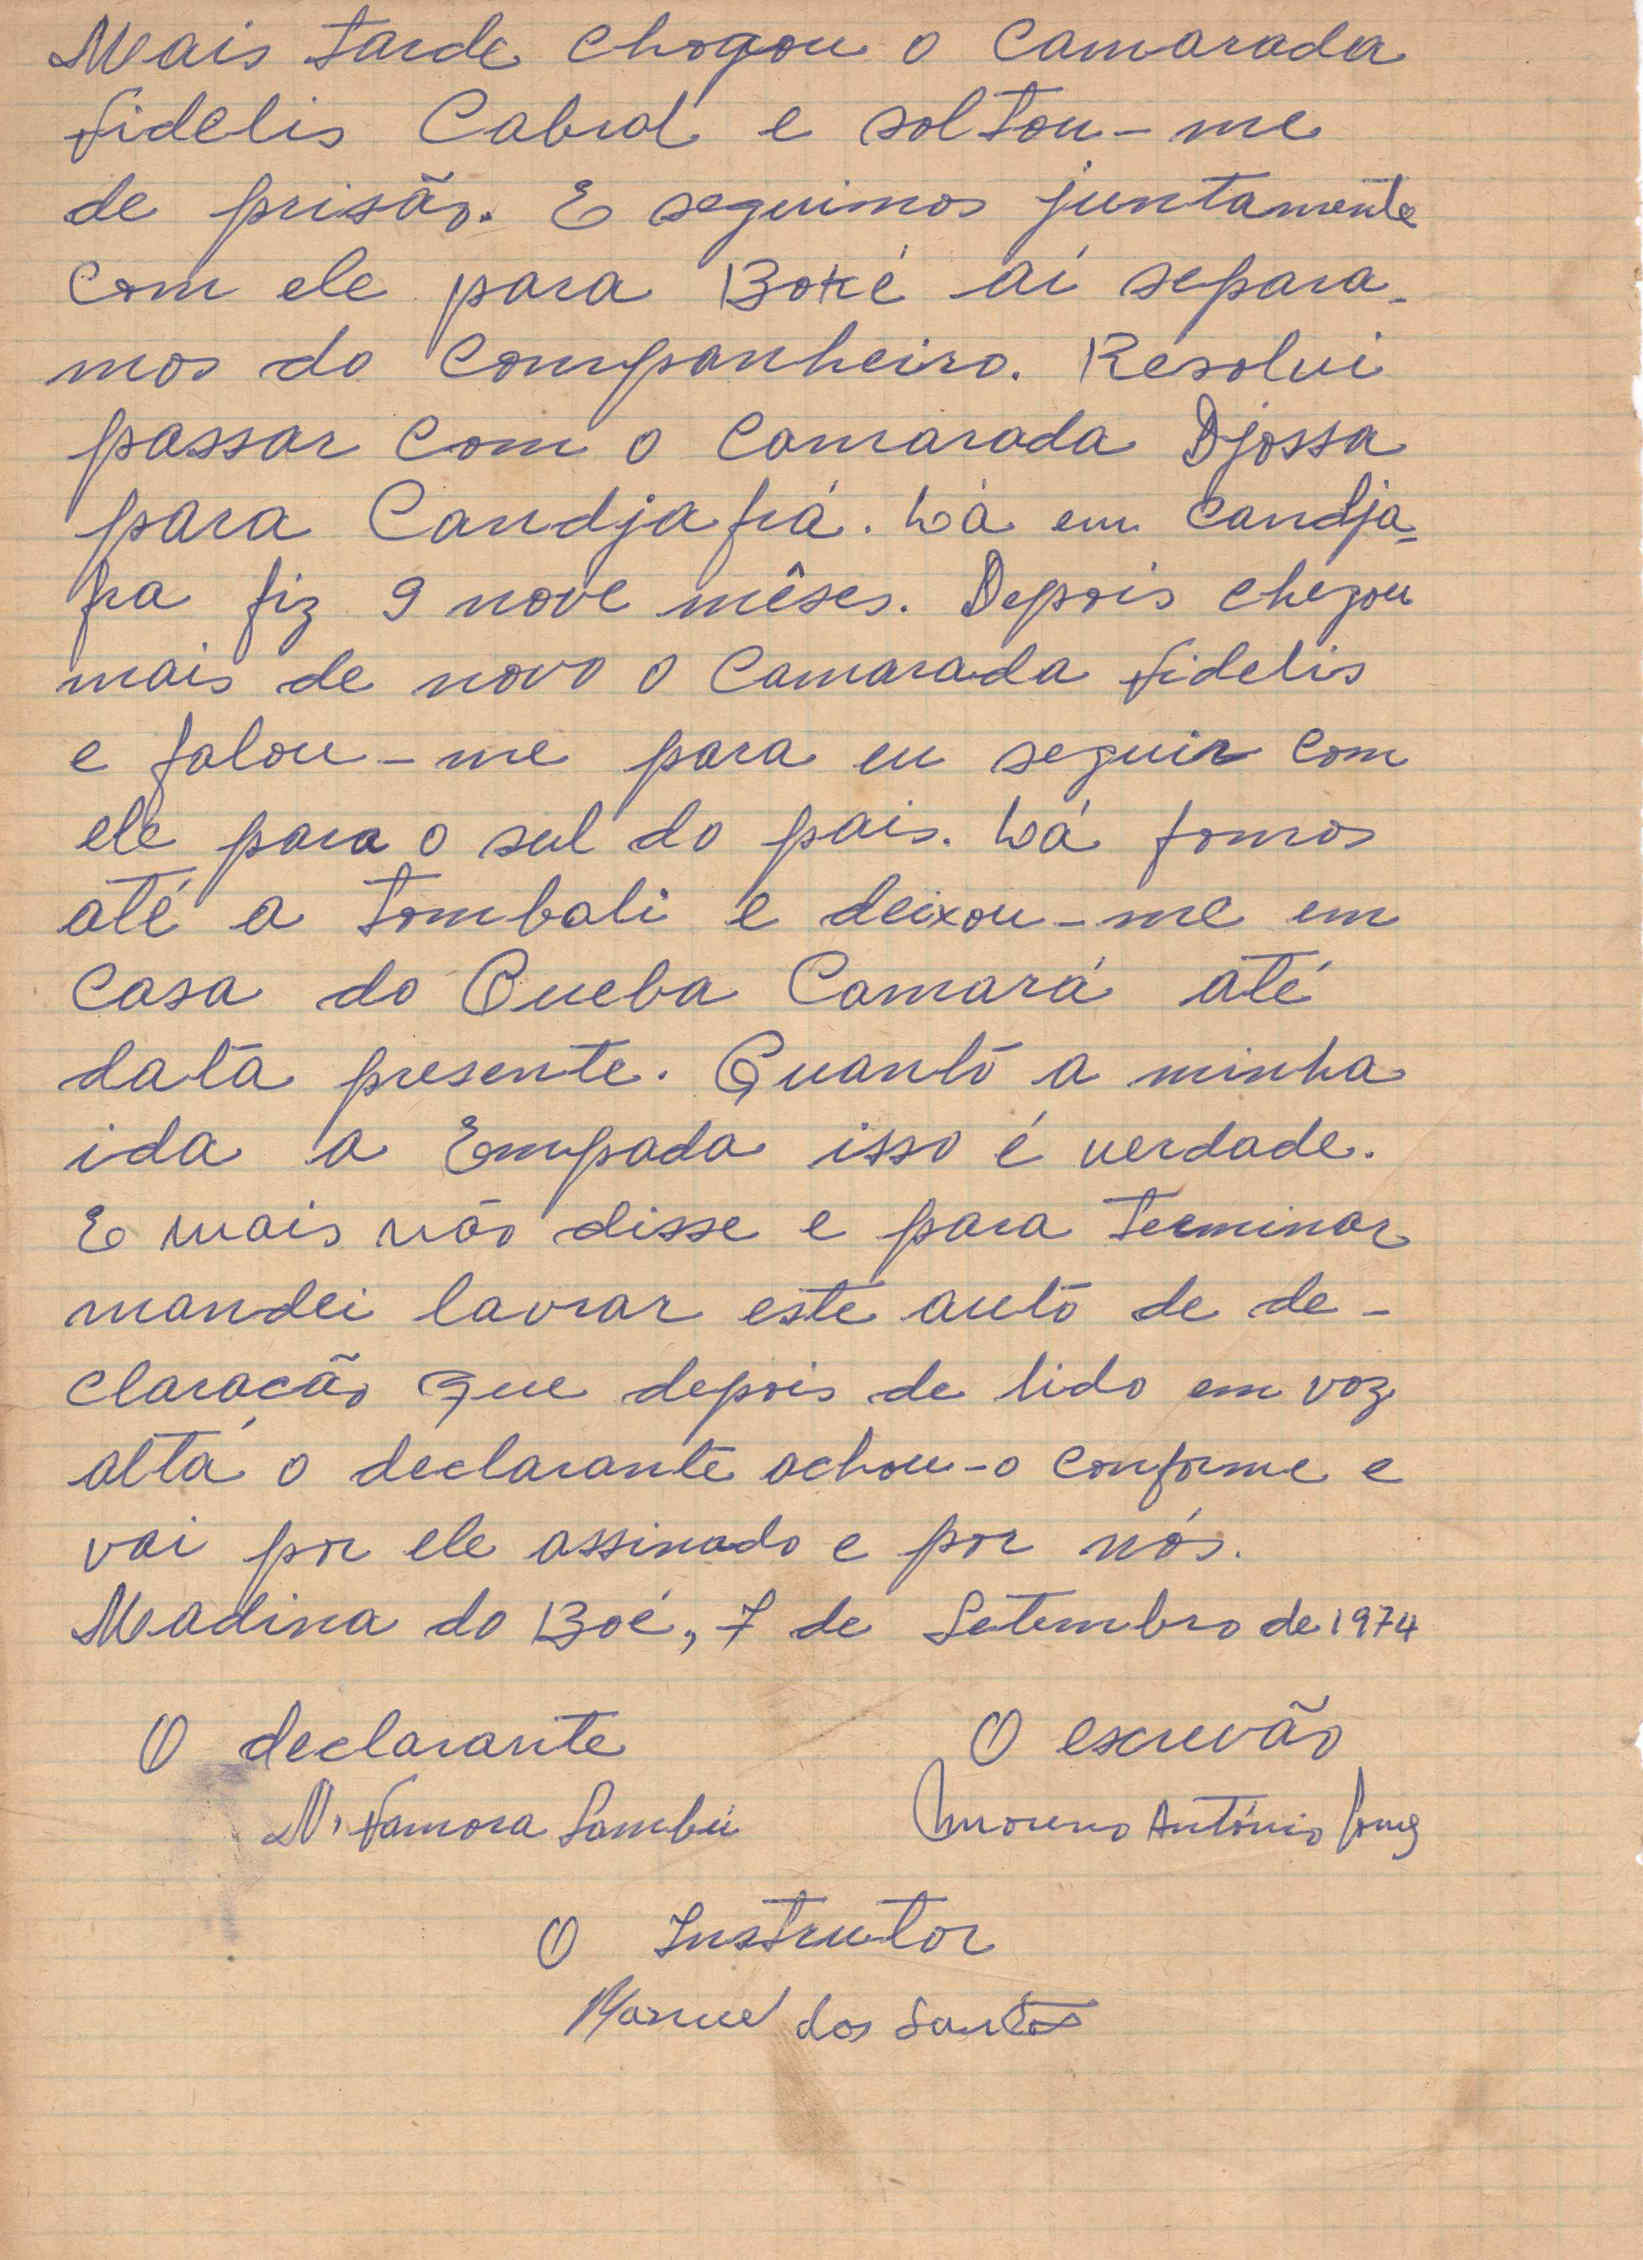 Mais tarde chegou o camarada
fidelis Cabral e soltou-me
de prisão. E seguimos juntamente
com ele para Boké aí separa-
mos do companheiro. Resolvi
passar com o camarada Djossa
para Candjafrá. Lá em Candja-
fra fiz 9 nove mêses. Depois chegou
mais de novo o camarada fidelis
e falou-me para eu seguir com
ele para o sul do pais. Lá fomos
até a tombali e deixou-me em
casa do Queba Camará até
data presente. Quanto a minha
ida a Empada isso é verdade.
E mais não disse e para terminar
mandei lavrar este auto de de-
claracão que depois de lido em voz
alta o declarante achou-o conforme e
vai por ele assinado e por nós.
Madina do Boé, 7 de Setembro de 1974
O declarante O escrevão
N'famora Sambú António
O Instrutor
Manuel dos Santos